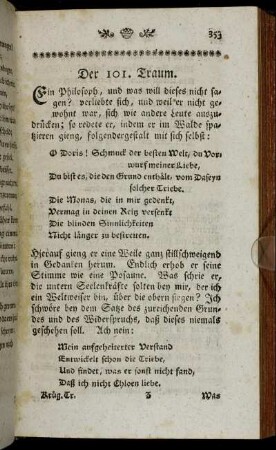 353
Der 101. Traum.
Ein Philosoph, und was will dieses nicht sa-
gen? verliebte sich, und weil er nicht ge-
wohnt war, sich wie andere Leute auszu-
drücken; so redete er, indem er im Walde spa-
zieren gieng, folgendergestalt mit sich selbst:
O Doris! Schmuck der besten Welt, du Vor-
wurf meiner Liebe,
Du bist es, die den Grund enthält, vom Daseyn
solcher Triebe.
Die Monas, die in mir gedenkt,
Vermag in deinen Reiz versenkt
Die blinden Sinnlichkeiten
Nicht länger zu bestreiten.
Hierauf gieng er eine Weile ganz stillschweigend
in Gedanken herum. Endlich erhob er seine
Stimme wie eine Posaune. Was schrie er,
die untern Seelenkräfte solten bey mir, der ich
ein Weltweiser bin, über die obern siegen? Ich
schwöre bey dem Satze des zureichenden Grun-
des und des Widerspruchs, daß dieses niemals
geschehen soll. Ach nein:
Mein aufgeheiterter Verstand
Entwickelt schon die Triebe,
Und findet, was er sonst nicht fand,
Daß ich nicht Chloen liebe.
Krüg. Tr. Z Was